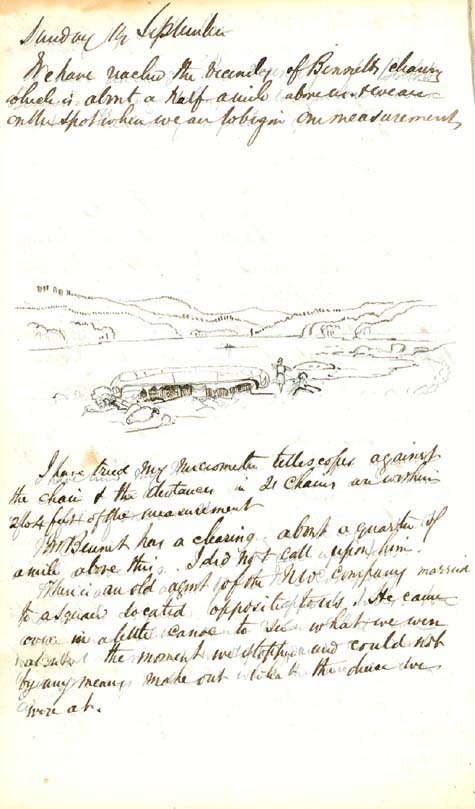 Sunday 19 September
We have reached the vicinity of Bennetts clearing
which is about a half a mile above us & we are
on the spot where we are to begin our measurements
I have tried my Micrometer tellescopes against
the chain & the distances in 21 chains are within
2 to 4 feet of the measurement
Mr Bennet has a clearing about a quarter of
a mile above this. I did not call upon him.
There is an old agent of the NW Company married
to a squaw located opposite to us. He came
over in a little canoe to see what we were
about the moment we stopped and could not
by any means make out what the deuce we
were at.